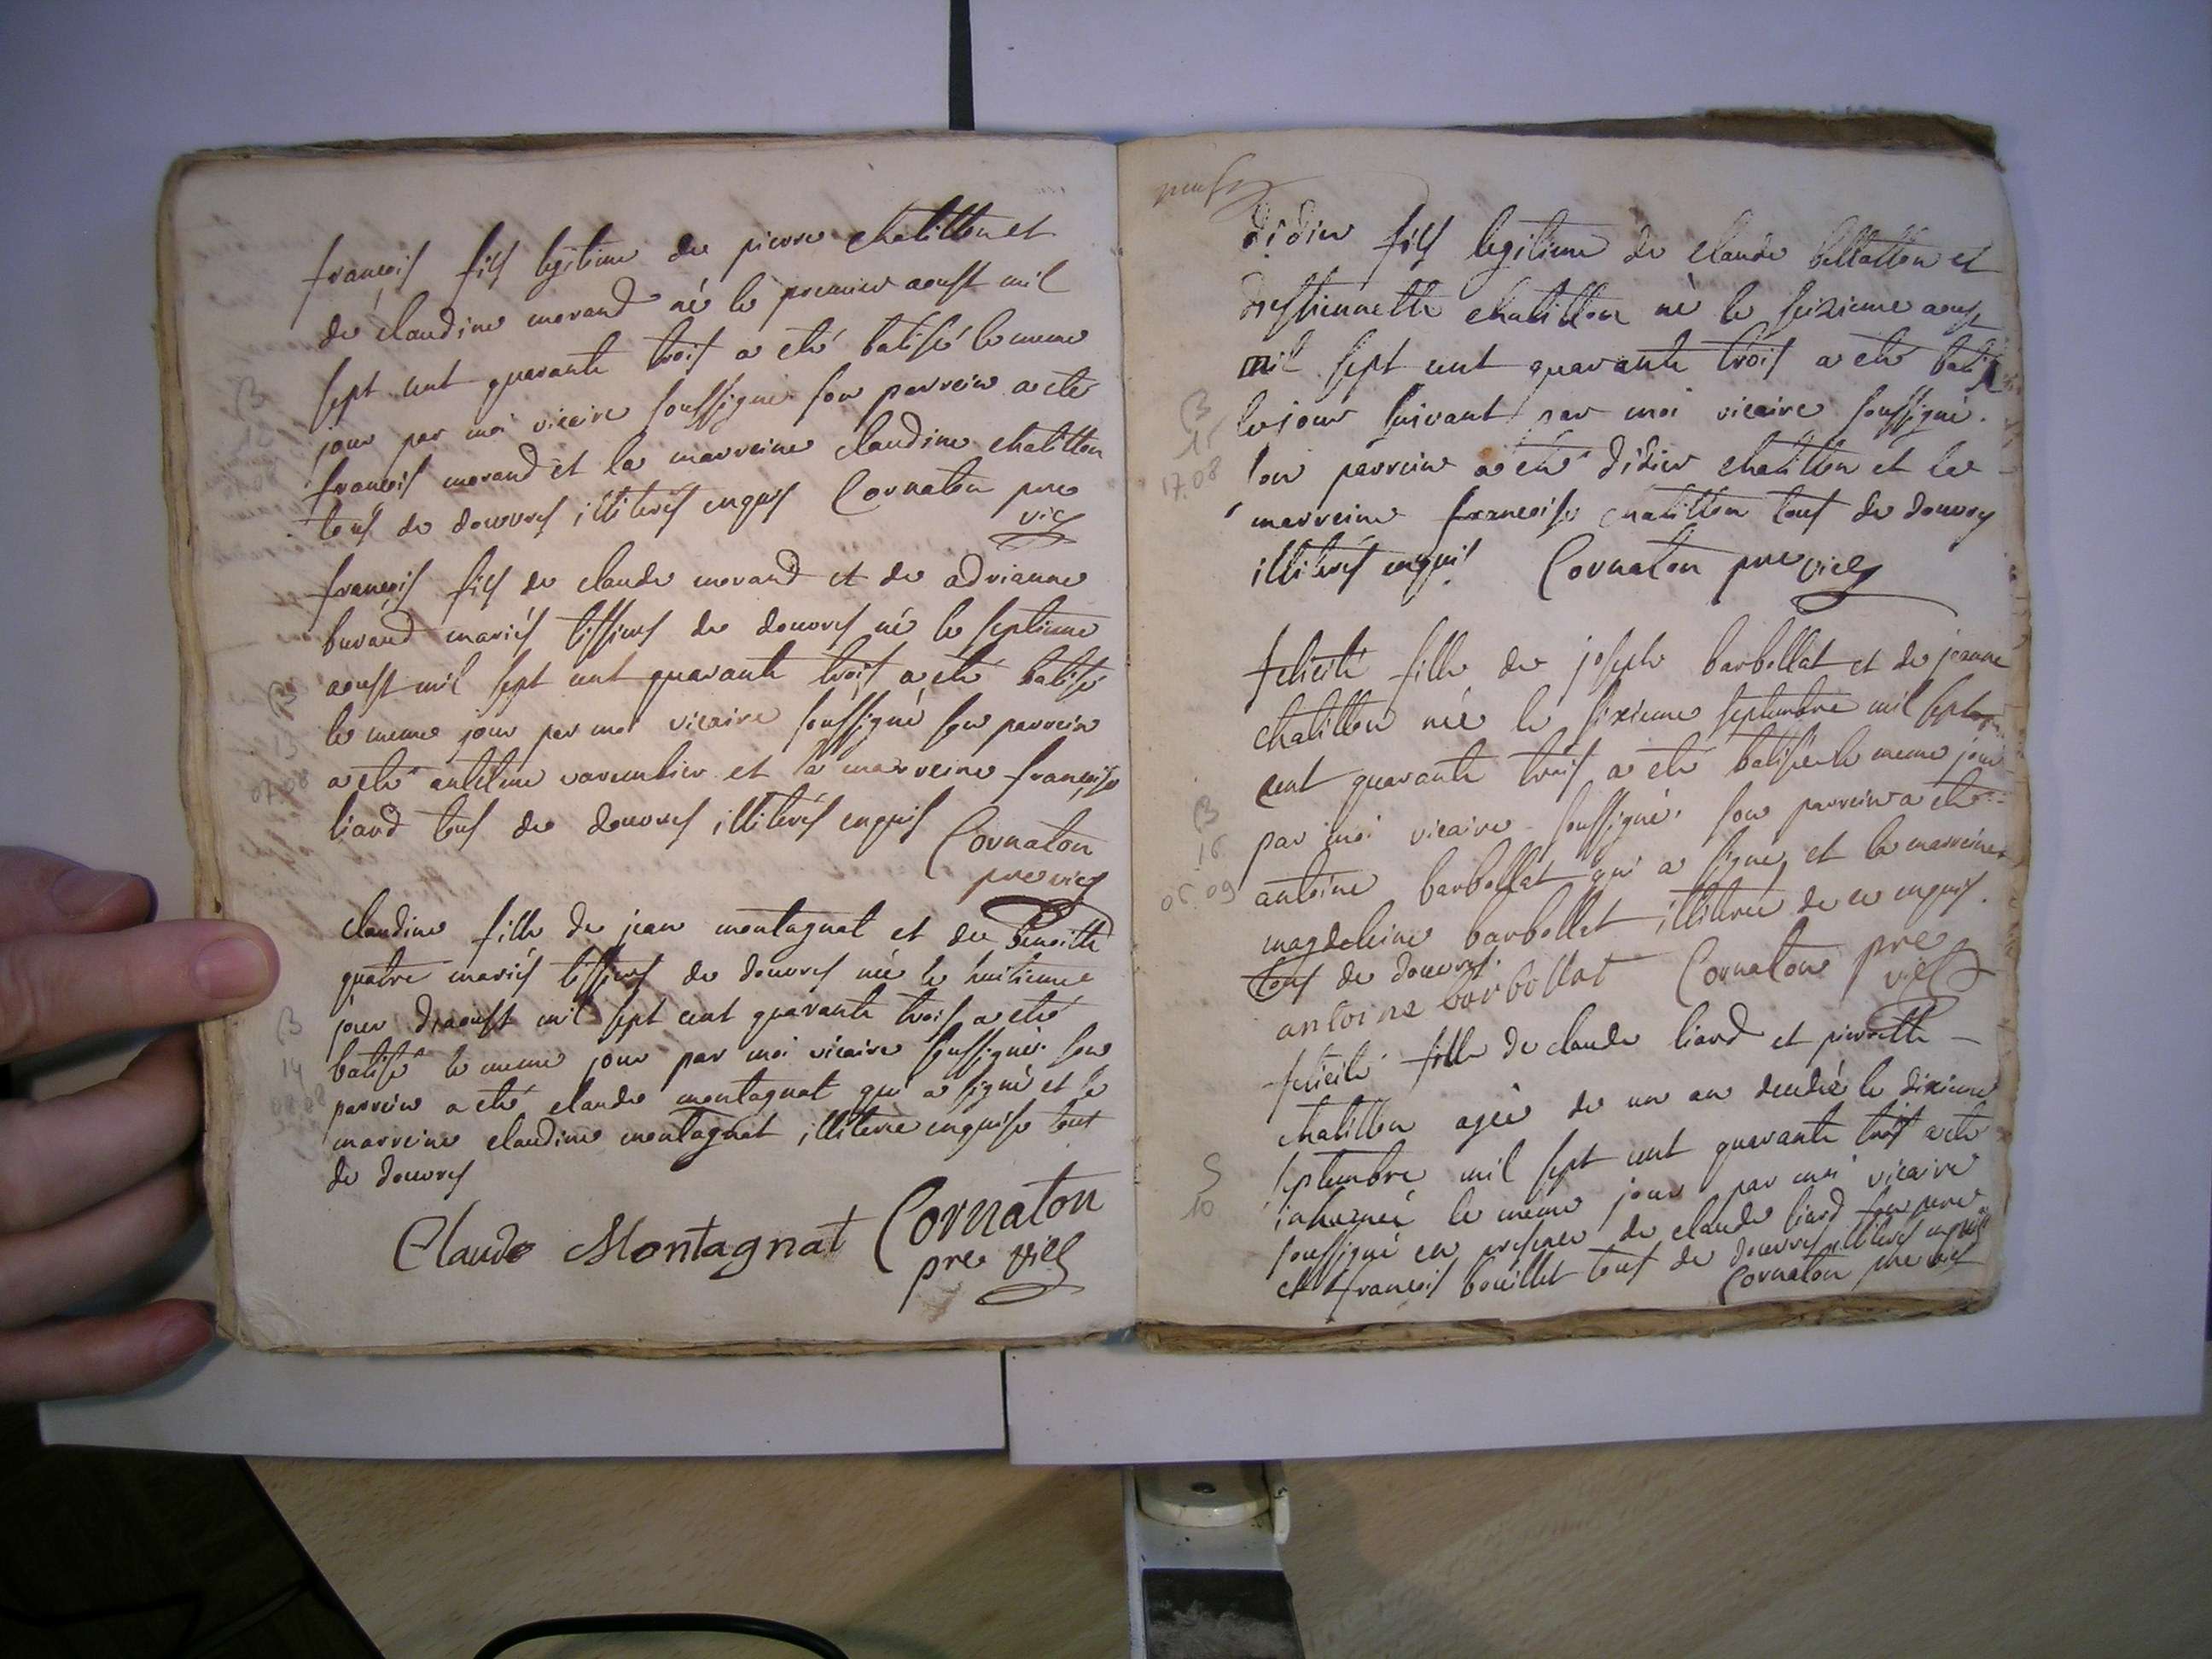 françois fils legitime de pierre chatillon et
de claudine morand né le premier aoust mil
sept cent quarante trois a eté batisé le meme
jour par moi vicaire soussigné son parrein a eté
françois morand et la marreine claudine chatillon
tous de douvres illiterés enquis Cornaton pre
vic
françois fils de claude morand et de adrianne
buvand mariés tissiers de douvres né le septieme
aoust mil sept cent quarante trois a eté batisé
le meme jour par moi vicaire soussigné son parrein
a eté antelme et la marreine françoise
liard tous de douvres illiterés enquis
Cornaton
pre vic
claudine fille de jean montagnat et de Benoitte
quatre mariés tissiers de douvres née le huitieme
jour d'aoust mil sept cent quarante trois a eté
batisé le meme jour par moi vicaire soussigné son
parrein a eté claude montagnat qui a signé et la
marreine claudine montagnat illiterée enquise tous
de douvres
Claude Montagnat Cornaton
pre vic
B
13
07.08
B
14
08.08
didier fils legitime de claude bellatton et
d'estiennette chatillon né le seizieme aous
mil sept cent quarante trois a eté batis
le jour suivant par moi vicaire soussigné.
son parrein a eté didier chatillon et la
marreine françoise chatillon tous de douvres
illiterés enquis Cornaton pre vic
B
15
17.08
felicité fille de joseph barbollat et de jeanne
chatillon née le sixieme septembre mil sept
cent quarante trois a eté batisée le meme jour
par moi vicaire soussigné. son parrein a eté
antoine barbollat qui a signé, et la marreine
magdeleine barbollat illiterée de ce enquis.
tous de douvres.
antoine barbollat Cornaton pre
vic
B
16
06.09
felicité fille de claude liard et pierrette
chatillon agée de un an decedée le dixieme
septembre mil sept cent quarante trois a eté
inhumée le meme jour par moi vicaire
soussigné en presence de claude liard son pere
et françois bouillet tous de douvres illiterés enquis
Cornaton pre vic
S
10